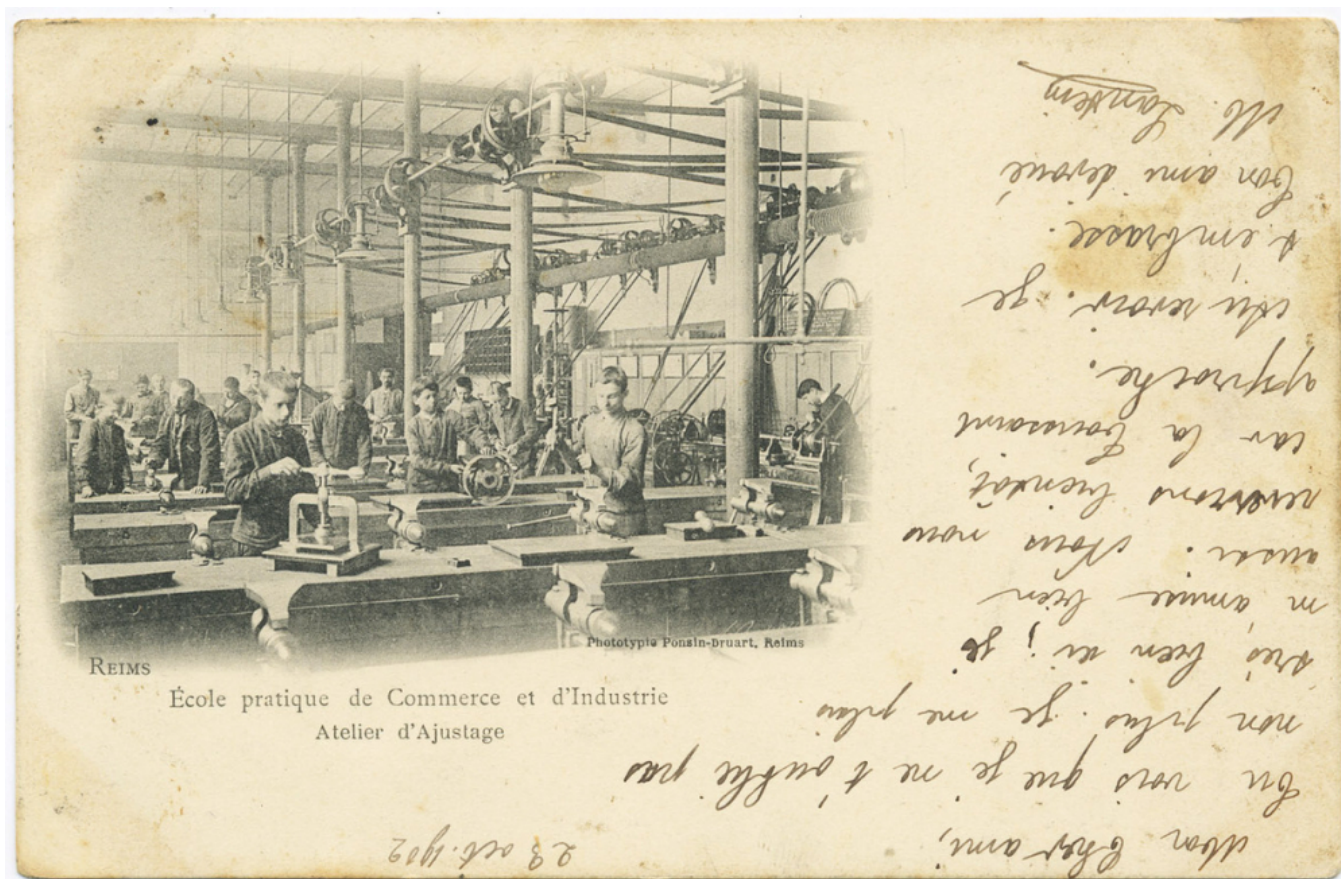 Phototypie Ponsin-Druart, Reims
REIMS
École pratique de Commerce et d'Industrie
Atelier d'Ajustage
23 oct. 1902
Mon Cher ami,
Tu vois que je ne t'oublie pas
non plus. Je me plais
très bien ici ; je
m'amuse bien
aussi. Nous nous
reverrons bientôt,
car la Toussaint
approche.
Au revoir. Je
t'embrasse.
Ton ami dévoué
M.